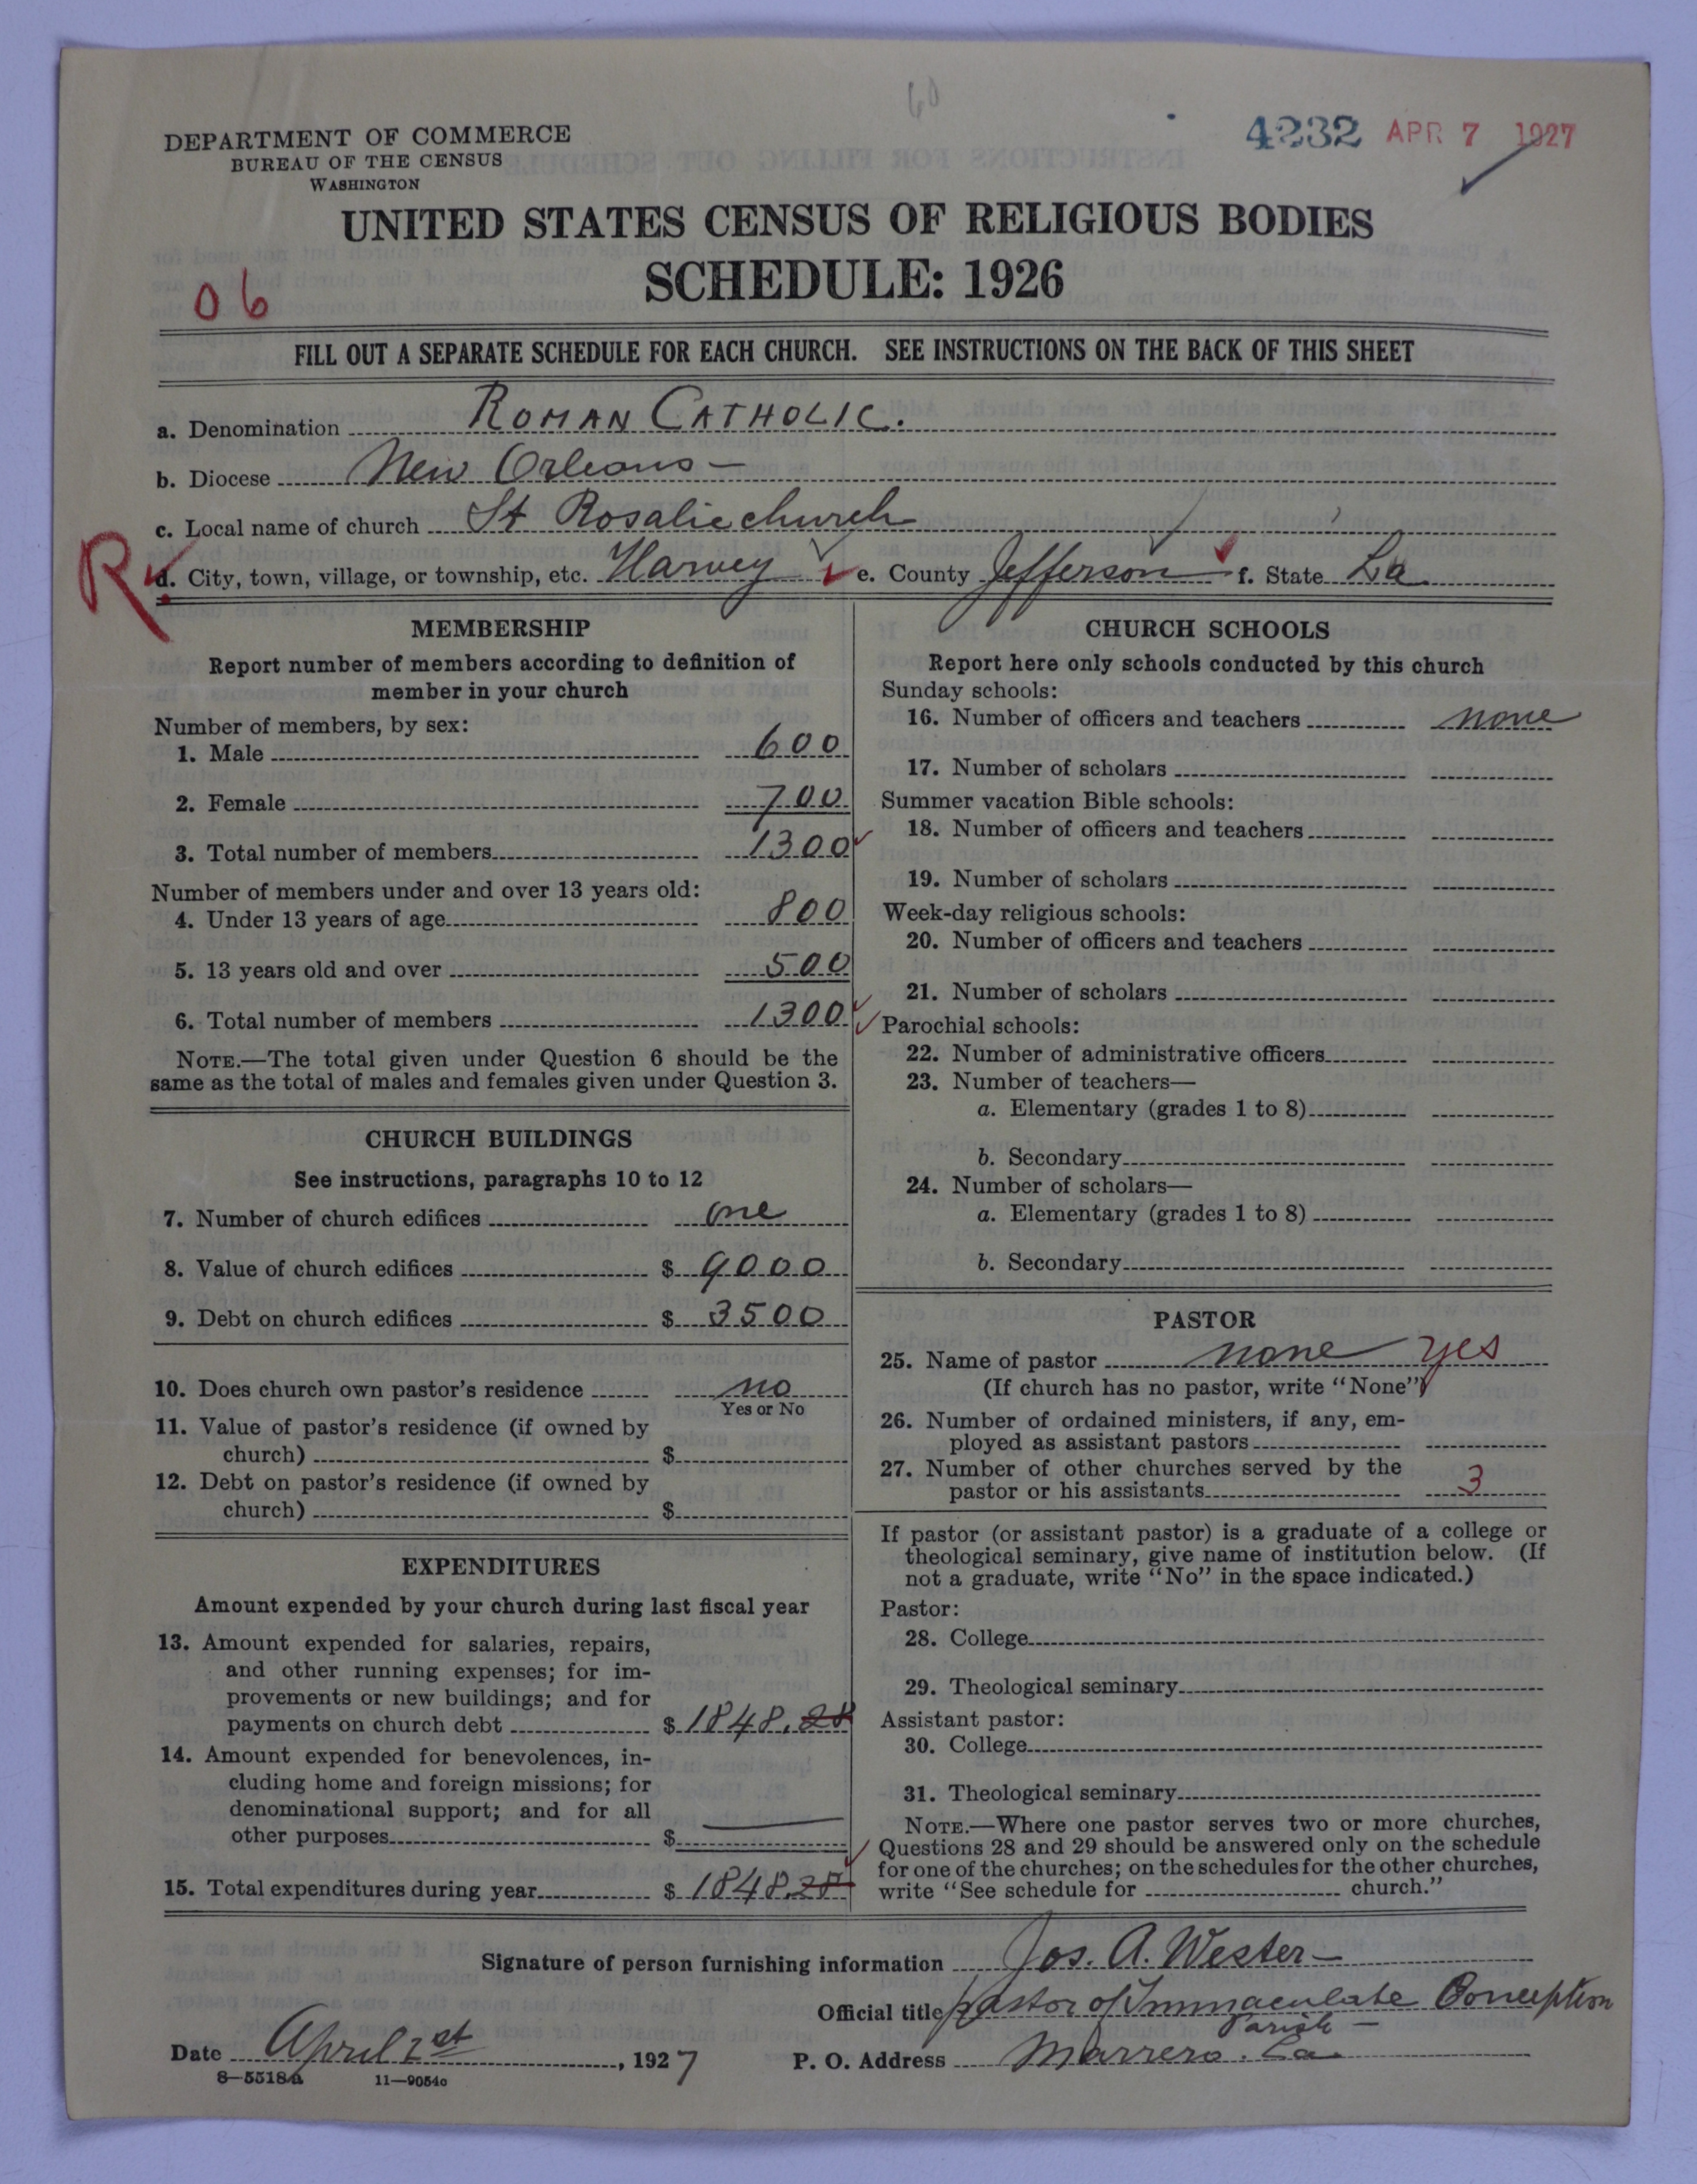 60
4232 APR 7 1927
DEPARTMENT OF COMMERCE
BUREAU OF THE CENSUS
WASHINGTON
UNITED STATES CENSUS OF RELIGIOUS BODIES
SCHEDULE: 1926
06
FILL OUT A SEPARATE SCHEDULE FOR EACH CHURCH. SEE INSTRUCTIONS ON THE BACK OF THIS SHEET
a. Denomination ROMAN CATHOLIC.
b. Diocese New Orleans—
c. Local name of church St Rosalie church
R d. City, town, village, or township, etc. Harvey e. County Jefferson f. State La.
MEMBERSHIP
Report number of members according to definition of
member in your church
Number of members, by sex:
1. Male 600
2. Female 700
3. Total number of members 1300
Number of members under and over 13 years old:
4. Under 13 years of age 800
5. 13 years old and over 500
6. Total number of members 1300
NOTE.—The total given under Question 6 should be the
same as the total of males and females given under Question 3.
CHURCH BUILDINGS
See instructions, paragraphs 10 to 12
7. Number of church edifices one
8. Value of church edifices $ 9000
9. Debt on church edifices $ 3500
10. Does church own pastor's residence no
Yes or No
11. Value of pastor's residence (if owned by
church) $
12. Debt on pastor's residence (if owned by
church) $
EXPENDITURES
Amount expended by your church during last fiscal year
13. Amount expended for salaries, repairs,
and other running expenses; for im-
provements or new buildings; and for
payments on church debt $ 1848.28
14. Amount expended for benevolences, in-
cluding home and foreign missions; for
denominational support; and for all
other purposes $ —
15. Total expenditures during year $ 1848.28
CHURCH SCHOOLS
Report here only schools conducted by this church
Sunday schools:
16. Number of officers and teachers none
17. Number of scholars
Summer vacation Bible schools:
18. Number of officers and teachers
19. Number of scholars
Week-day religious schools:
20. Number of officers and teachers
21. Number of scholars
Parochial schools:
22. Number of administrative officers
23. Number of teachers—
a. Elementary (grades 1 to 8)
b. Secondary
24. Number of scholars—
a. Elementary (grades 1 to 8)
b. Secondary
PASTOR
25. Name of pastor none yes
(If church has no pastor, write "None")
26. Number of ordained ministers, if any, em-
ployed as assistant pastors
27. Number of other churches served by the
pastor or his assistants 3
If pastor (or assistant pastor) is a graduate of a college or
theological seminary, give name of institution below. (If
not a graduate, write "No" in the space indicated.)
Pastor:
28. College
29. Theological seminary
Assistant pastor:
30. College
31. Theological seminary
NOTE.—Where one pastor serves two or more churches,
Questions 28 and 29 should be answered only on the schedule
for one of the churches; on the schedules for the other churches,
write "See schedule for church."
Signature of person furnishing information Jos. A. Wester—
Official title pastor of Immaculate Conception
Parish —
Date April 1st, 1927 P. O. Address Marrero. La.
8—5518a 11—9054o